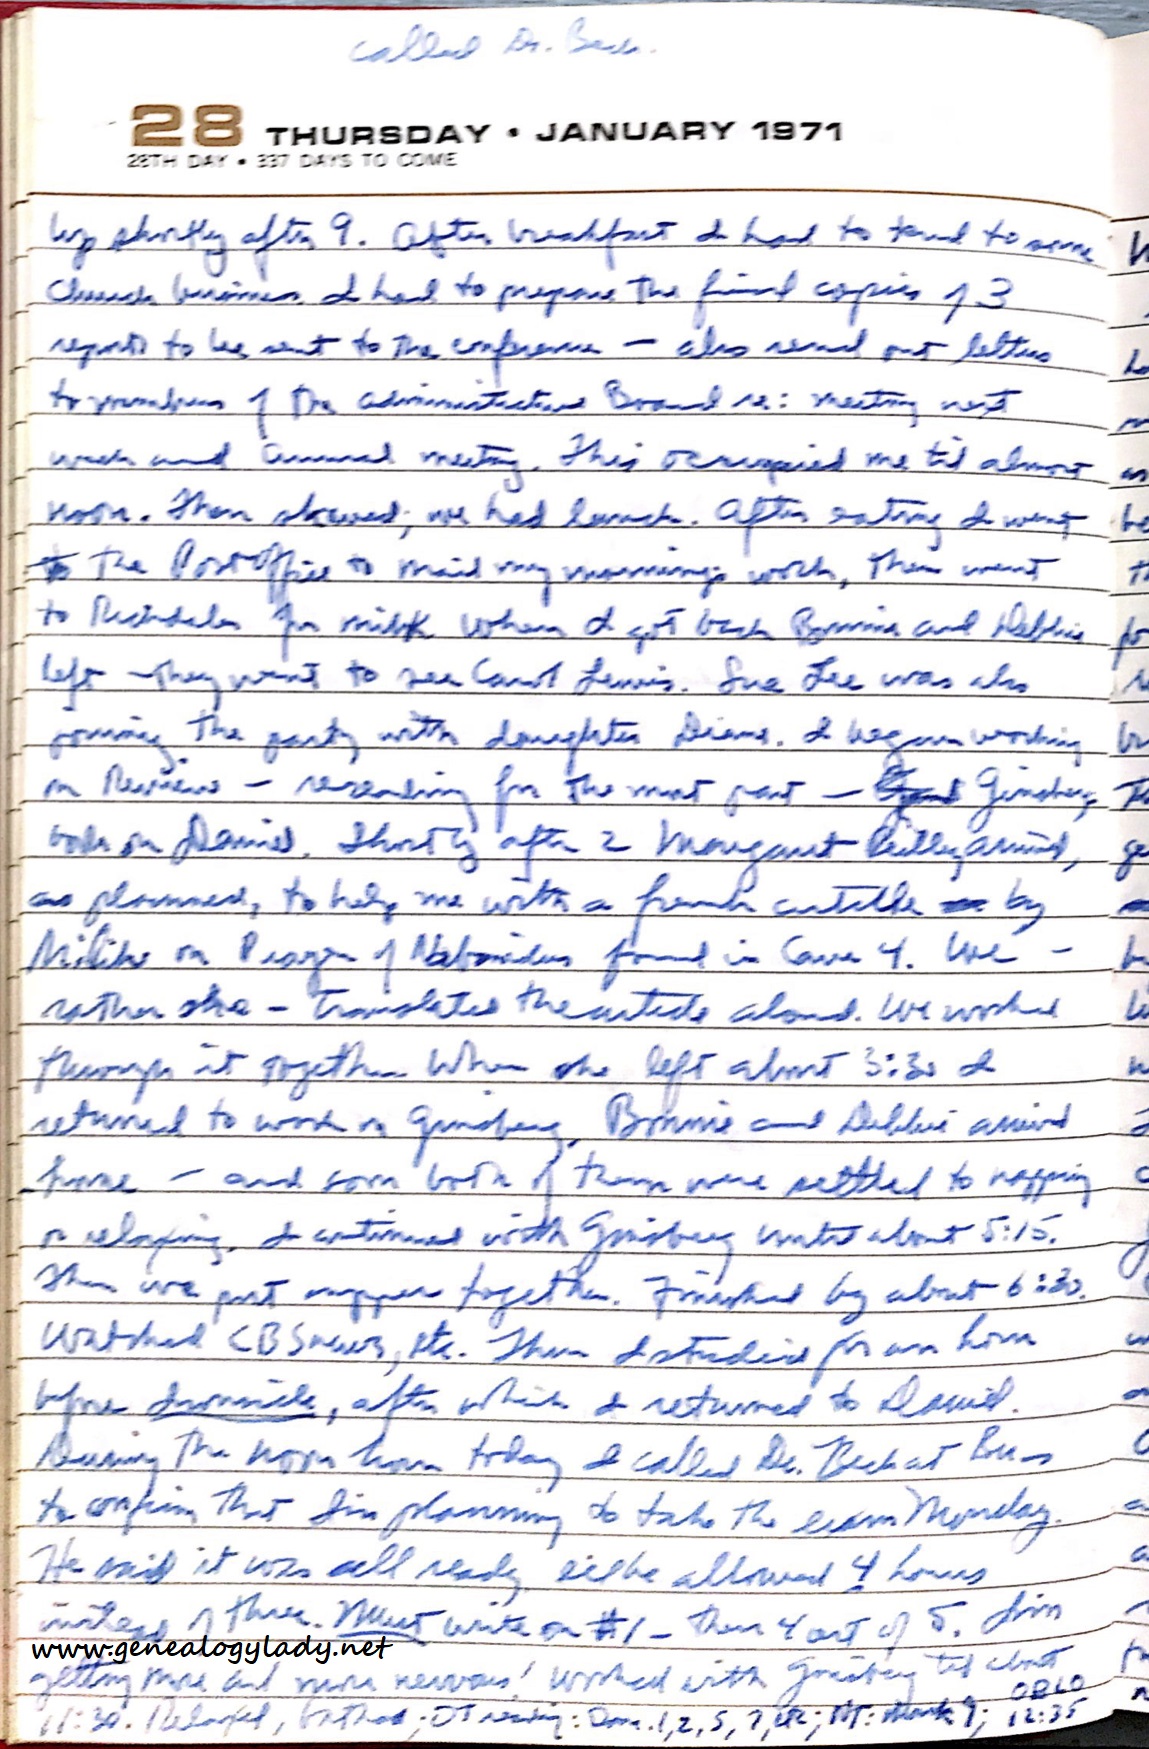 called Dr. Beck.
28 THURSDAY • JANUARY 1971
28TH DAY • 337 DAYS TO COME
Up shortly after 9. After breakfast I had to tend to some
Church business. I had to prepare the final copies of 3
reports to be sent to the conference — also send out letters
to members of the Administrative Board re: meeting next
week and annual meeting. This occupied me til almost
noon. Then shaved; we had lunch. After eating I went
to the Post Office to mail my mornings work, then went
to Richdales for milk. When I got back Bonnie and Debbie
left — they went to see Carol Lewis. Sue Lee was also
joining the party with daughter Diane. I began working
on Review — rereading for the most part — Ginsberg
book on Daniel. Shortly after 2 Margaret Reilly arrived,
as planned, to help me with a french article by
Milik on Prayer of Nabonidus found in Cave 4. We —
rather she — translated the article aloud. We worked
through it together. When she left about 3:30 I
returned to work on Ginsberg. Bonnie and Debbie arrived
home — and soon both of them were settled to napping
or relaxing. I continued with Ginsberg until about 5:15.
Then we put supper together. Finished by about 6:30.
Watched CBS news, etc. Then I studied for an hour
before Ironside, after which I returned to Daniel.
During the noon hour today I called Dr. Beck at
to confirm that I'm planning to take the exam Monday.
He said it was all ready, I'll be allowed 4 hours
instead of three. Must write on #1 — then 4 out of 5. I'm
www.genealogylady.net
getting more and more nervous! Worked with Ginsberg til about
11:30. Relaxed, bathed; OT reading: Dan. 1, 2, 5, 7, etc; NT: Mark 9; 12:35